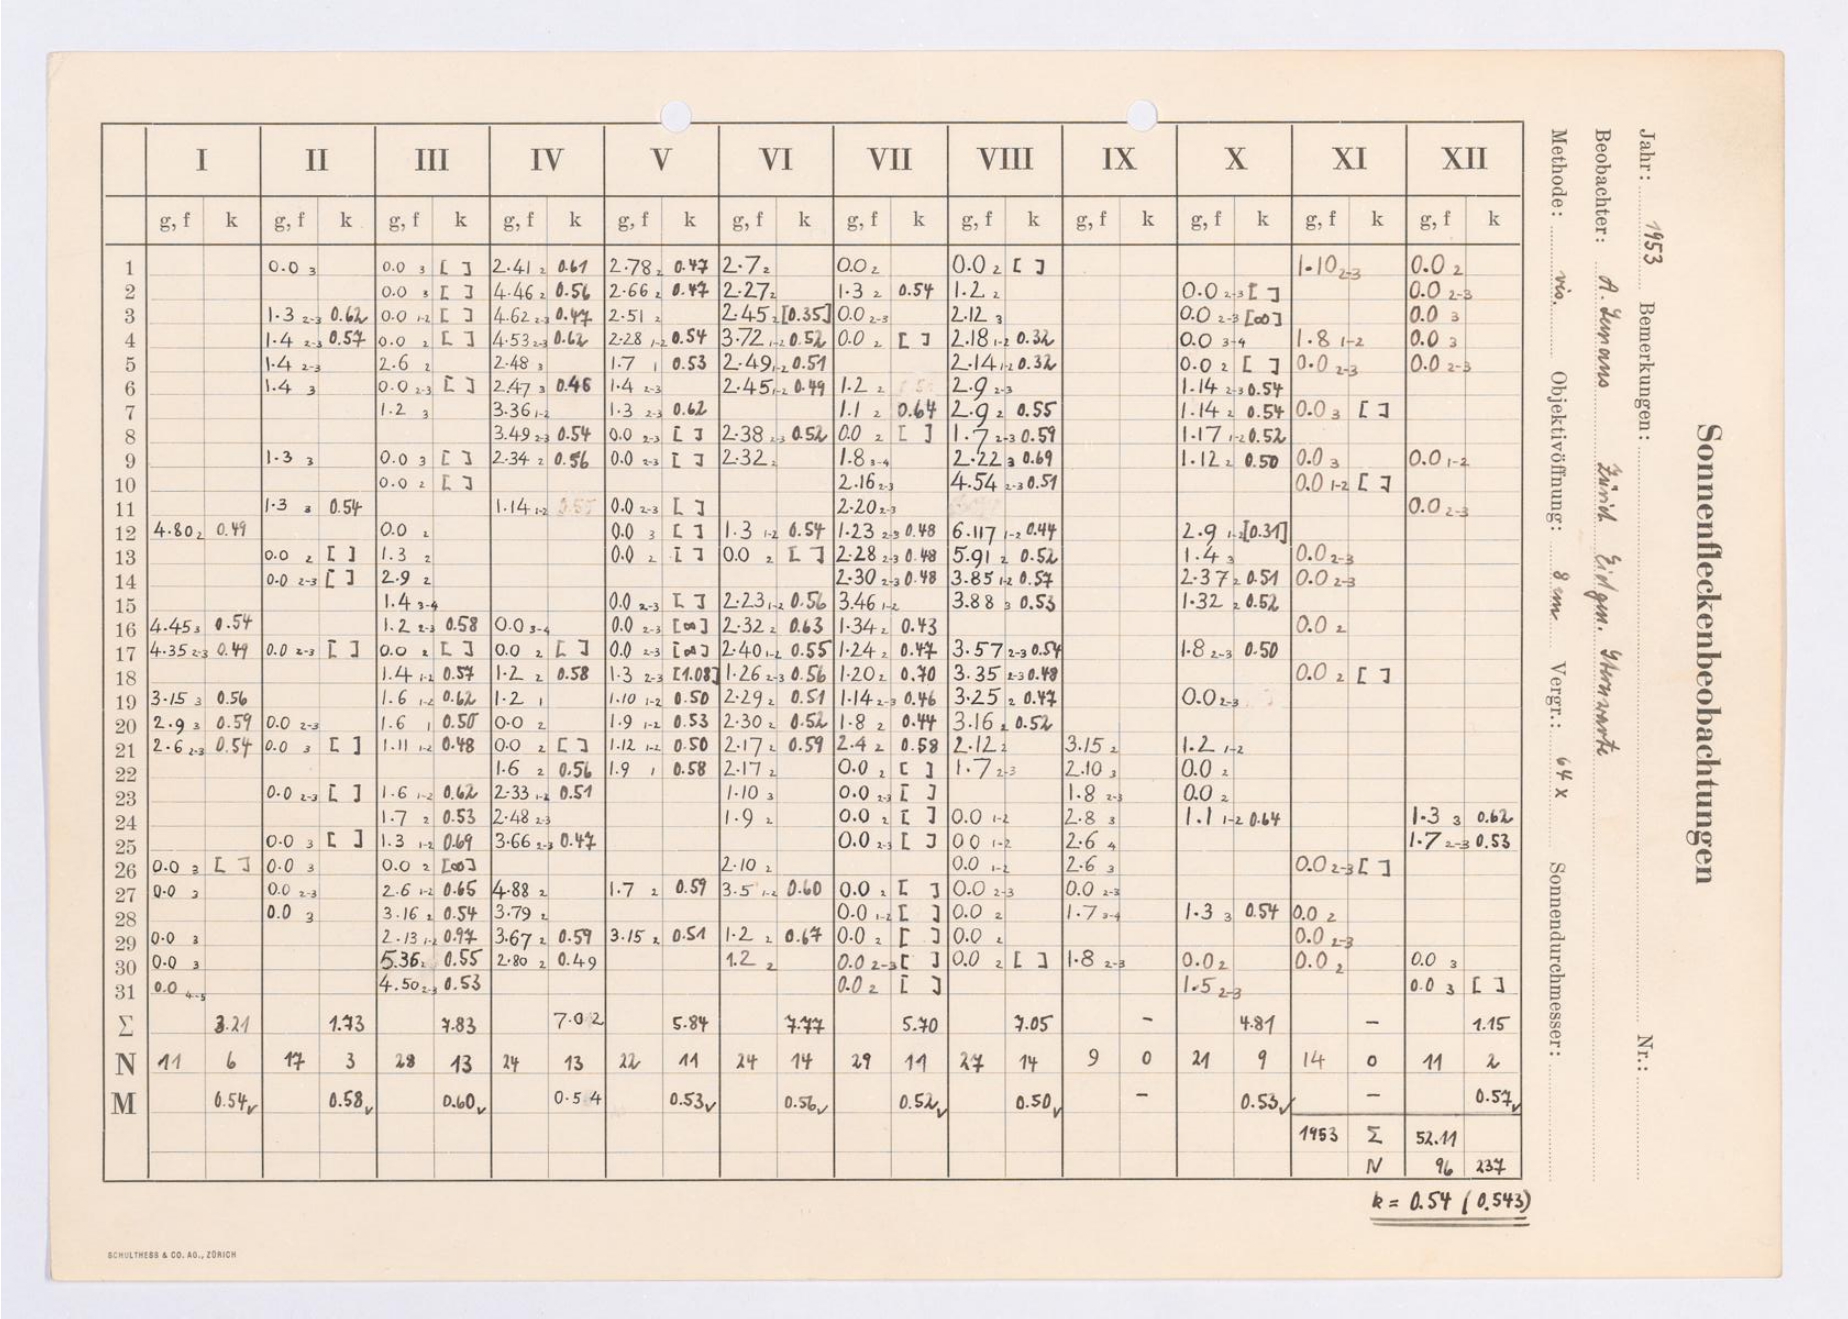 I II III IV V VI VII VIII IX X XI XII
g, f k g, f k g, f k g, f k g, f k g, f k g, f k g, f k g, f k g, f k g, f k g, f k
1 0.0 3 0.0 3 [ ] 2.41 2 0.61 2.78 2 0.47 2.7 2 0.0 2 0.0 2 [ ] 1.10 2-3 0.0 2
2 0.0 3 [ ] 4.46 2 0.56 2.66 2 0.47 2.27 2 1.3 2 0.54 1.2 2 0.0 2-3 [ ] 0.0 2-3
3 1.3 2-3 0.62 0.0 1-2 [ ] 4.62 2-3 0.47 2.51 2 2.45 2 [0.35] 0.0 2-3 2.12 3 0.0 2-3 [∞] 0.0 3
4 1.4 2-3 0.57 0.0 2 [ ] 4.53 2-3 0.62 2.28 1-2 0.54 3.72 1-2 0.52 0.0 2 [ ] 2.18 1-2 0.32 0.0 3-4 1.8 1-2 0.0 3
5 1.4 2-3 2.6 2 2.48 3 1.7 1 0.53 2.49 1-2 0.51 2.14 1-2 0.32 0.0 2 [ ] 0.0 2-3 0.0 2-3
6 1.4 3 0.0 2-3 [ ] 2.47 3 0.46 1.4 2-3 2.45 1-2 0.49 1.2 2 2.9 2-3 1.14 2-3 0.54
7 1.2 3 3.36 1-2 1.3 2-3 0.62 1.1 2 0.64 2.9 2 0.55 1.14 2 0.54 0.0 3 [ ]
8 3.49 2-3 0.54 0.0 2-3 [ ] 2.38 2-3 0.52 0.0 2 [ ] 1.7 2-3 0.59 1.17 1-2 0.52
9 1.3 3 0.0 3 [ ] 2.34 2 0.56 0.0 2-3 [ ] 2.32 2 1.8 3-4 2.22 3 0.69 1.12 2 0.50 0.0 3 0.0 1-2
10 0.0 2 [ ] 2.16 2-3 4.54 2-3 0.51 0.0 1-2 [ ]
11 1.3 3 0.54 1.14 1-2 0.0 2-3 [ ] 2.20 2-3 0.0 2-3
12 4.80 2 0.49 0.0 2 0.0 3 [ ] 1.3 1-2 0.54 1.23 2-3 0.48 6.117 1-2 0.44 2.9 1-2 [0.31]
13 0.0 2 [ ] 1.3 2 0.0 2 [ ] 0.0 2 [ ] 2.28 2-3 0.48 5.91 2 0.52 1.4 3 0.0 2-3
14 0.0 2-3 [ ] 2.9 2 2.30 2-3 0.48 3.85 1-2 0.57 2.37 2 0.51 0.0 2-3
15 1.4 3-4 0.0 2-3 [ ] 2.23 1-2 0.56 3.46 1-2 3.88 3 0.53 1.32 2 0.52
16 4.45 3 0.54 1.2 2-3 0.58 0.0 3-4 0.0 2-3 [∞] 2.32 2 0.63 1.34 2 0.43 0.0 2
17 4.35 2-3 0.49 0.0 2-3 [ ] 0.0 2 [ ] 0.0 2 [ ] 0.0 2-3 [∞] 2.40 1-2 0.55 1.24 2 0.47 3.57 2-3 0.54 1.8 2-3 0.50
18 1.4 1-2 0.57 1.2 2 0.58 1.3 2-3 [1.08] 1.26 2-3 0.56 1.20 2 0.70 3.35 2-3 0.48 0.0 2 [ ]
19 3.15 3 0.56 1.6 1-2 0.62 1.2 1 1.10 1-2 0.50 2.29 2 0.51 1.14 2-3 0.46 3.25 2 0.47 0.0 2-3
20 2.9 3 0.59 0.0 2-3 1.6 1 0.50 0.0 2 1.9 1-2 0.53 2.30 2 0.52 1.8 2 0.44 3.16 2 0.52
21 2.6 2-3 0.54 0.0 3 [ ] 1.11 1-2 0.48 0.0 2 [ ] 1.12 1-2 0.50 2.17 2 0.59 2.4 2 0.58 2.12 2 3.15 2 1.2 1-2
22 1.6 2 0.56 1.9 1 0.58 2.17 2 0.0 2 [ ] 1.7 2-3 2.10 3 0.0 2
23 0.0 2-3 [ ] 1.6 1-2 0.62 2.33 1-2 0.51 1.10 3 0.0 2-3 [ ] 1.8 2-3 0.0 2
24 1.7 2 0.53 2.48 2-3 1.9 2 0.0 2 [ ] 0.0 1-2 2.8 3 1.1 1-2 0.64 1.3 3 0.62
25 0.0 3 [ ] 1.3 1-2 0.69 3.66 2-3 0.47 0.0 2-3 [ ] 0 0 1-2 2.6 4 1.7 2-3 0.53
26 0.0 3 [ ] 0.0 3 0.0 2 [∞] 2.10 2 0.0 1-2 2.6 3 0.0 2-3 [ ]
27 0.0 3 0.0 2-3 2.6 1-2 0.65 4.88 2 1.7 2 0.59 3.5 1-2 0.60 0.0 2 [ ] 0.0 2-3 0.0 2-3
28 0.0 3 3.16 2 0.54 3.79 2 0.0 1-2 [ ] 0.0 2 1.7 3-4 1.3 3 0.54 0.0 2
29 0.0 3 2.13 1-2 0.97 3.67 2 0.59 3.15 2 0.51 1.2 2 0.67 0.0 2 [ ] 0.0 2 0.0 2-3
30 0.0 3 5.36 2 0.55 2.80 2 0.49 1.2 2 0.0 2-3 [ ] 0.0 2 [ ] 1.8 2-3 0.0 2 0.0 2 0.0 3
31 0.0 4-5 4.50 2-3 0.53 0.0 2 [ ] 1.5 2-3 0.0 3 [ ]
Σ 3.21 1.73 7.83 7.02 5.84 7.77 5.70 7.05 – 4.81 – 1.15
N 11 6 17 3 28 13 24 13 22 11 24 14 29 11 27 14 9 0 21 9 14 0 11 2
M 0.54 0.58 0.60 0.54 0.53 0.56 0.52 0.50 – 0.53 – 0.57
1953 Σ 52.11
N 96 237
k = 0.54 (0.543)
SCHULTHESS & CO. AG., ZÜRICH
Sonnenfleckenbeobachtungen
Jahr: 1953 Bemerkungen: Nr.:
Beobachter: A. Zürich Eidgen. Sternwarte
Methode: vis. Objektivöffnung: 8 cm Vergr.: 64 x Sonnendurchmesser: